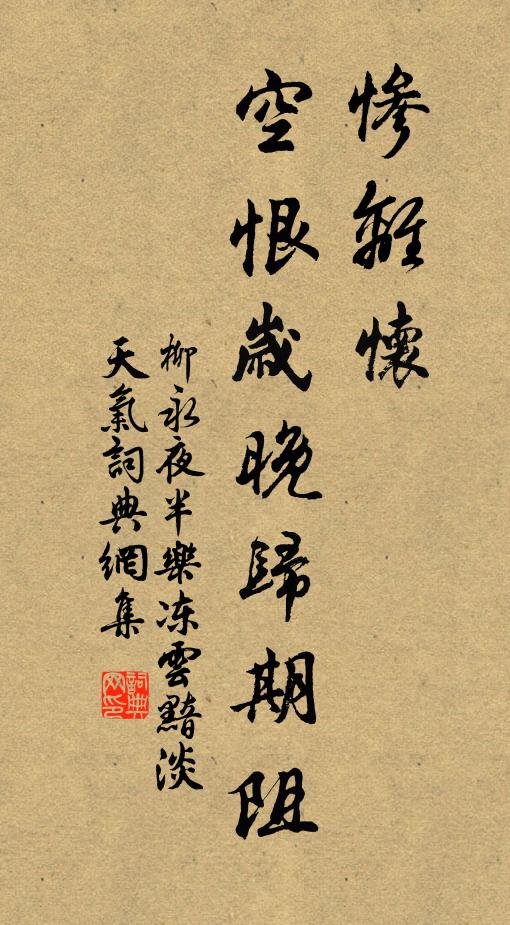 慘離懷
空恨歲晚歸期阻
柳永夜半樂冻雲黯淡
天氣詞典網集
詞典
网印